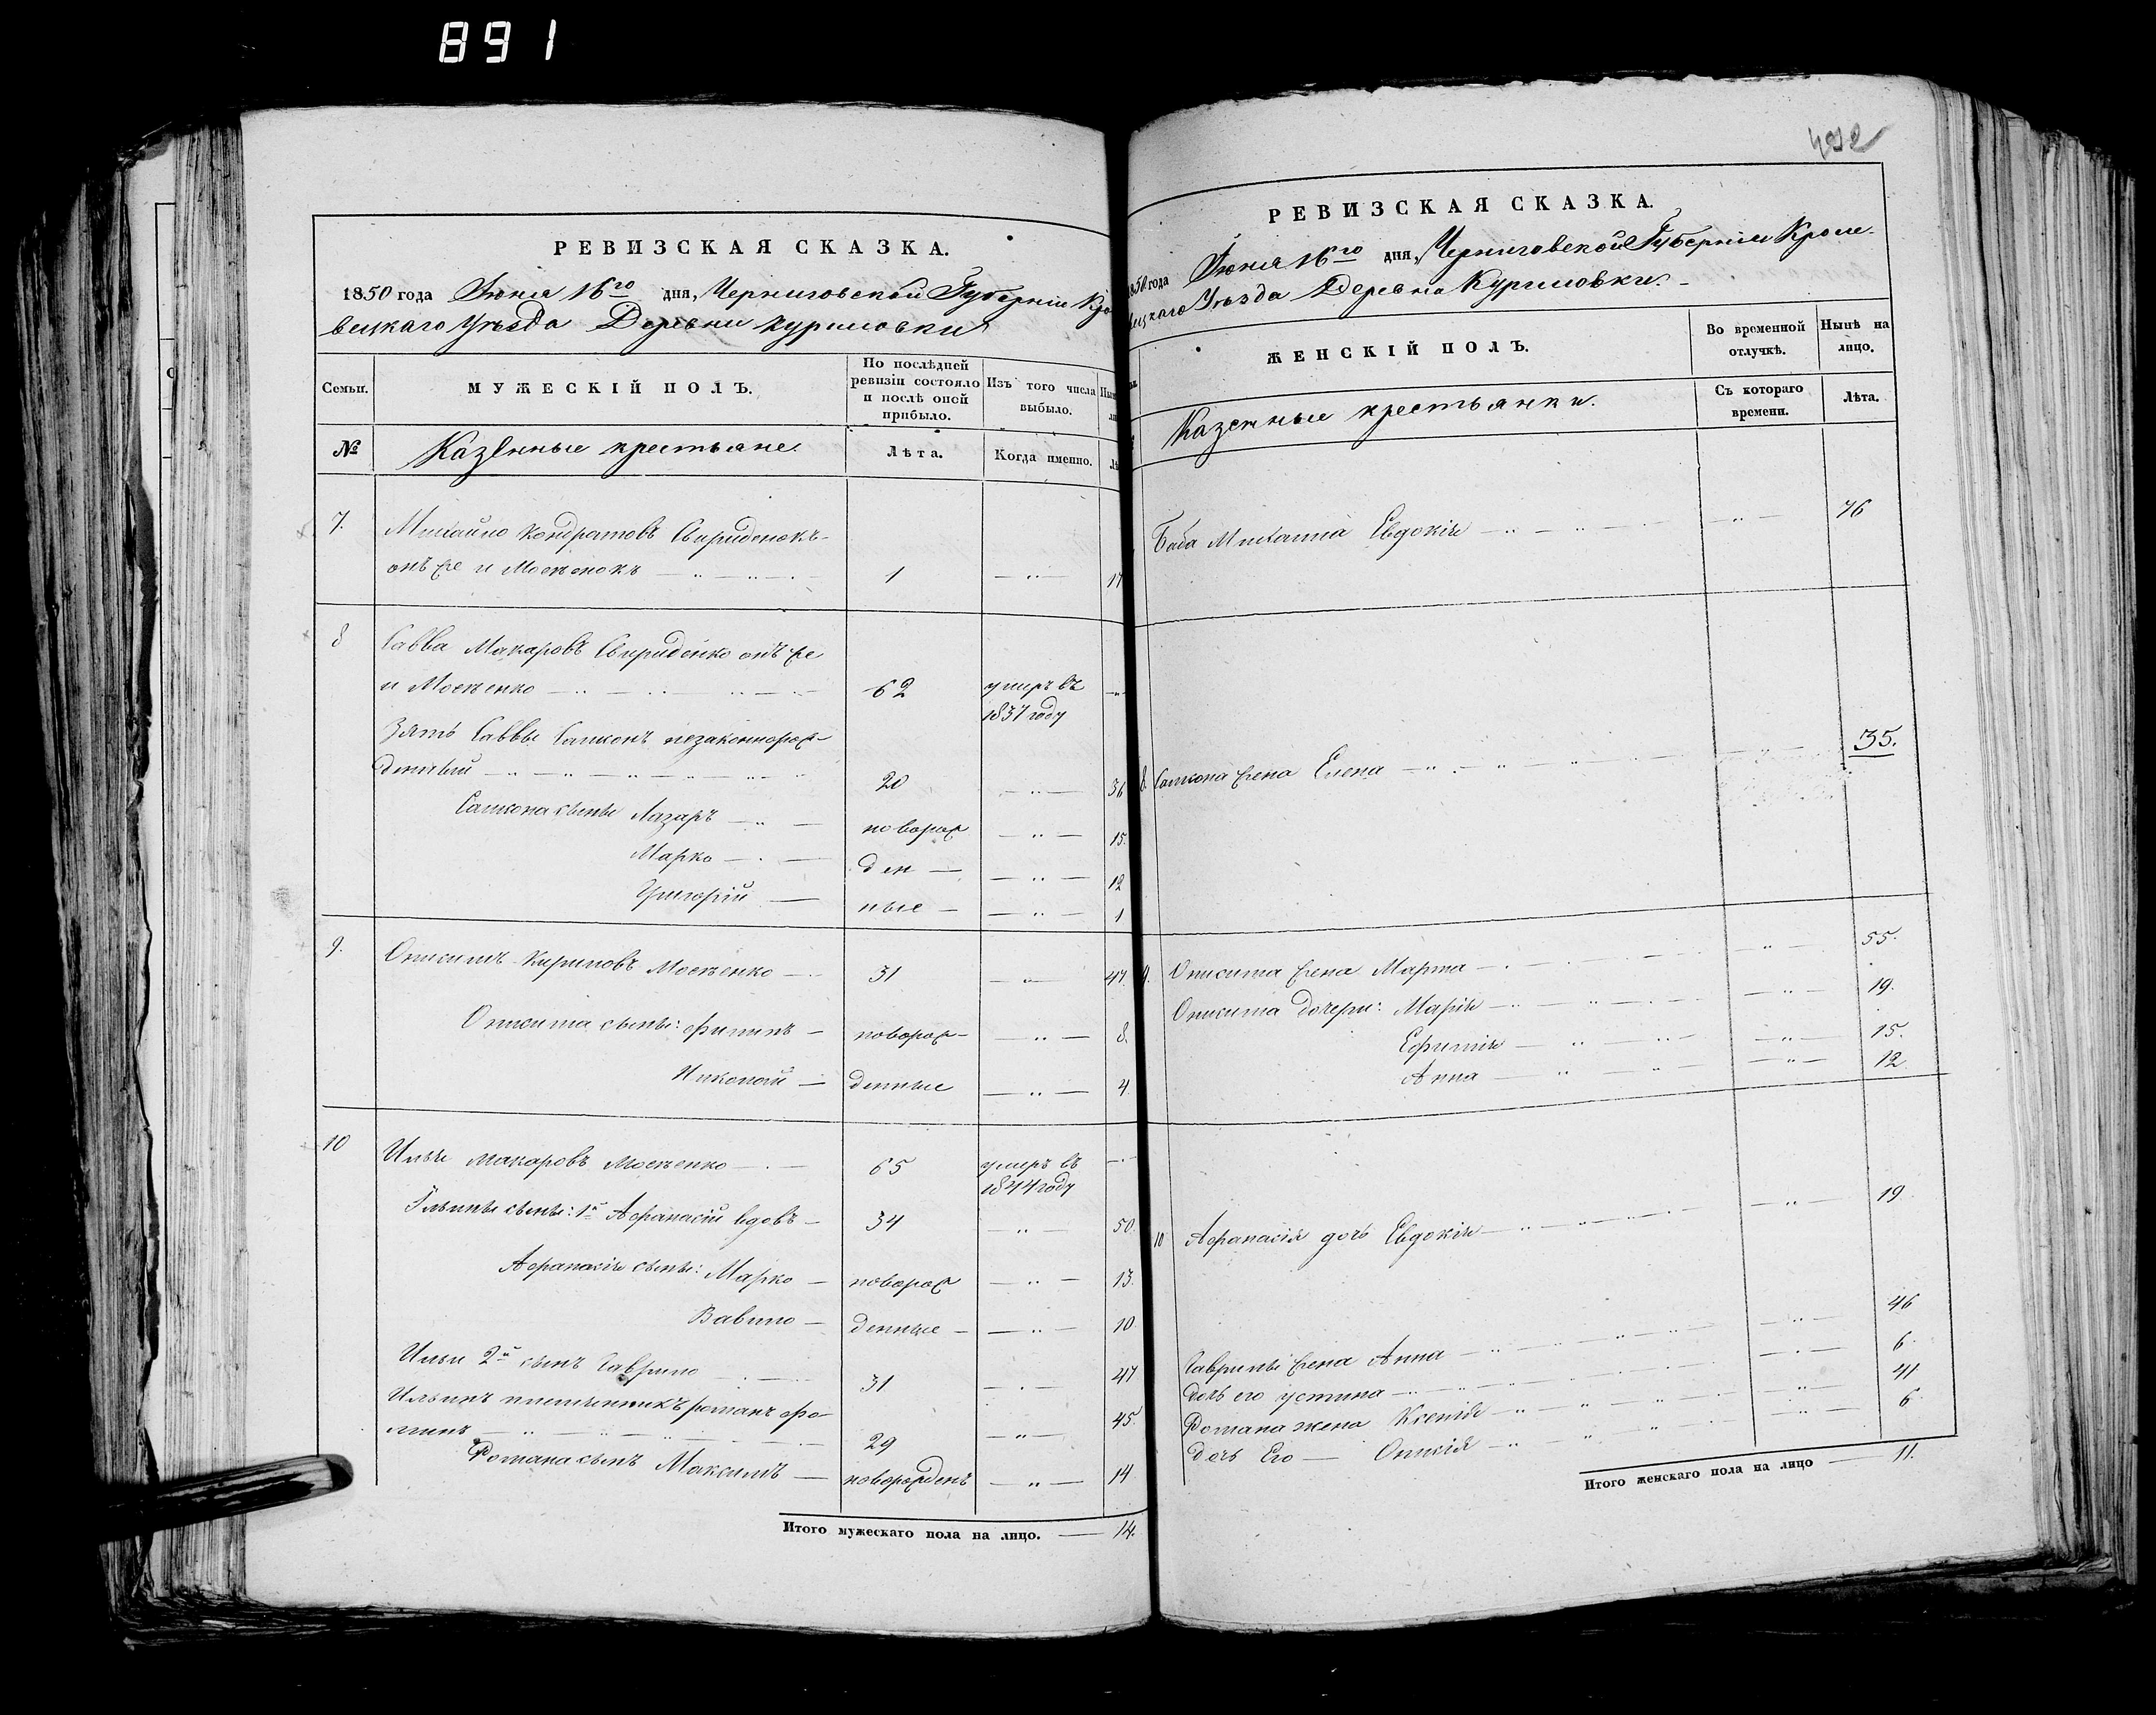 891
РЕВИЗСКАЯ СКАЗКА.
1850 года Июня 16го дня, Черниговской Губерніи Кро
вецкаго Уѣзда Деревни Куриловки
Семьи.
МУЖЕСКІЙ ПОЛЪ.
По послѣдней
ревизіи состояло
и послѣ оной
прибыло.
Изъ того числа
выбыло.
№
Казенные крестьяне.
Лѣта.
Когда именно.
7. Михайло Кондратовъ Свириденокъ
онъ же и Мосѣенокъ 1 17
8 Савва Макаровъ Свириденко онъ же
и Мосѣенко 62 умеръ въ
1837 году
Зять Саввы Самсонъ незаконнорож
денный 20 36
Самсона сыны Лазаръ новорож 15.
Марко ден 12
Григорій ные 1
9. Онисимъ Кириловъ Мосѣенко 31 47.
Онисима сыны: Филипъ новорож 8.
Николай денные 4
10 Илья Макаровъ Мосѣенко 65 умеръ въ
1844 году
Ильины сыны: 1й Афанасій вдовъ 34 50.
Афанасія сыны: Марко новорож 13.
Вавило денные 10
Ильи 2й сынъ Гаврило 31 47
Ильинъ племянникъ Романъ Фо
минъ 29 45.
Романа сынъ Максимъ новорожденъ 14
Итого мужескаго пола на лицо. 14.
РЕВИЗСКАЯ СКАЗКА.
1850 года Июня 16го дня, Черниговской Губерніи Кроле
вецкаго Уѣзда Деревни Куриловки.
ЖЕНСКІЙ ПОЛЪ.
Во временной
отлучкѣ.
Нынѣ на
лицо.
Казенные крестьянки.
Съ котораго
времени.
Лѣта.
Баба Михайла Евдокія 76
8. Самсона жена Елена 35.
9. Онисима жена Марфа 55.
Онисима дочери: Марія 19.
Ефимія 15.
Анна 12
10 Афанасія дочь Евдокія 19
Гаврилы жена Анна 46
дочь его Устина 6.
Романа жена Ксенія 41
дочь Его 6
Итого женскаго пола на лицо 11.